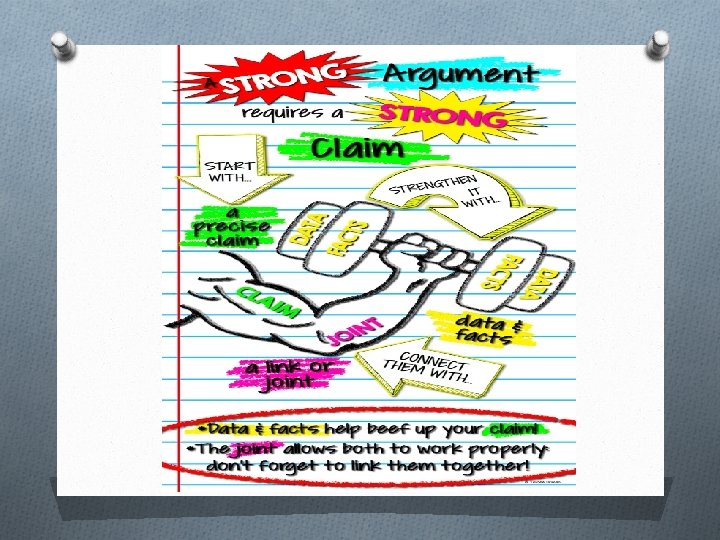 A STRONG Argument
requires a STRONG
Claim
START
WITH...
a
precise
claim
STRENGTHEN
IT
WITH...
DATA
FACTS
FACTS
DATA
CLAIM
JOINT
data &
facts
CONNECT
THEM WITH...
a link or
joint
•Data & facts help beef up your claim!
•The joint allows both to work properly
don't forget to link them together!